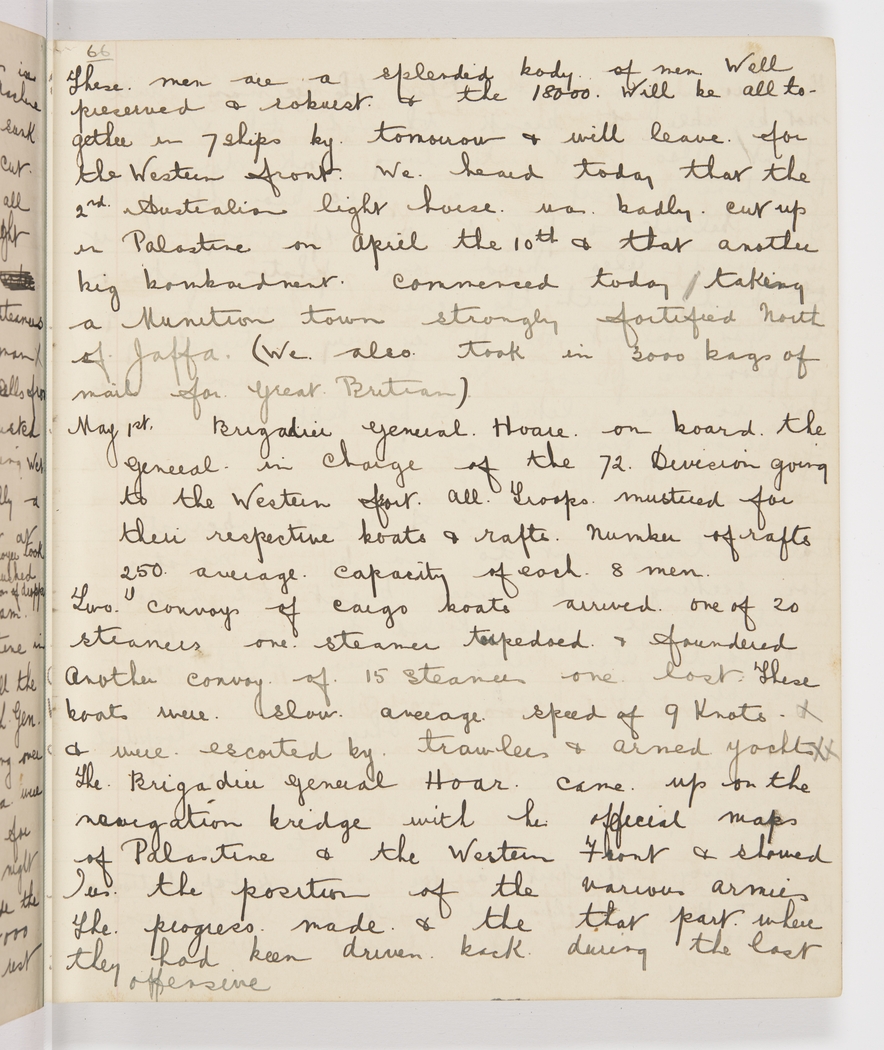 66
These. men are a splendid body. of men Well
preserved & robust. & the 18000. Will be all to-
gether in 7 ships by. tomorrow & will leave. for
the Western front. We. heard today that the
2nd. Australian light horse. was. badly. cut up
in Palastine on April the 10th & that another
big bombardment. commenced today / taking
a Munition town strongly fortified North
of Jaffa. (We. also. took in 3000 bags of
mail for. Great. Britian)
May 1st. Brigadier General. Hoare. on board. the
General. in Charge of the 72. Division going
to the Western fort. All. Troops. mustered for
their respective boats & rafts. Number of rafts
250. average. capacity of each. 8 men.
Two." convoys of cargo boats arrived. one of 20
steamers one. steamer torpedoed. & foundered
Another convoy. of. 15 Steamers one lost. These
boats were. slow. average speed of 9 Knots. X
& were. escorted by. trawlers & armed yachts XX
The. Brigadier General Hoar. came. up on the
navigation bridge with he. official maps
of Palastine & the Western Front & showed
us. the position of the various armies
The. progress. made. & the that part. where
they had been driven. back. during the last
offensive